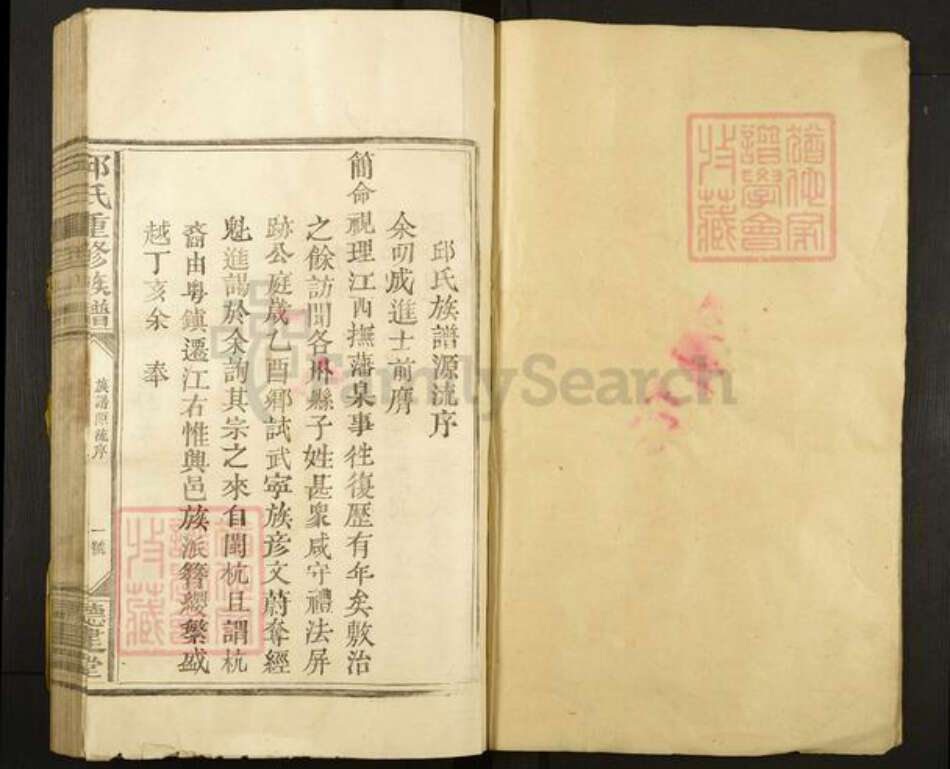 邱氏族譜源流序
余叨成進士前膺
簡命視理江西撫藩臬事往復歷有年矣敷治
之餘訪聞各州縣子姓甚衆咸守禮法屏
跡公庭歲乙酉鄉試武寧族彥文蔚奪經
魁進謁於余詢其宗之來自閩杭且謂杭
裔由粵鎮遷江右惟興邑族派簪纓繁盛
越丁亥余奉
邱氏重修族譜
族譜源流序
一號
德星堂
譜學會
收藏
FamilySearch